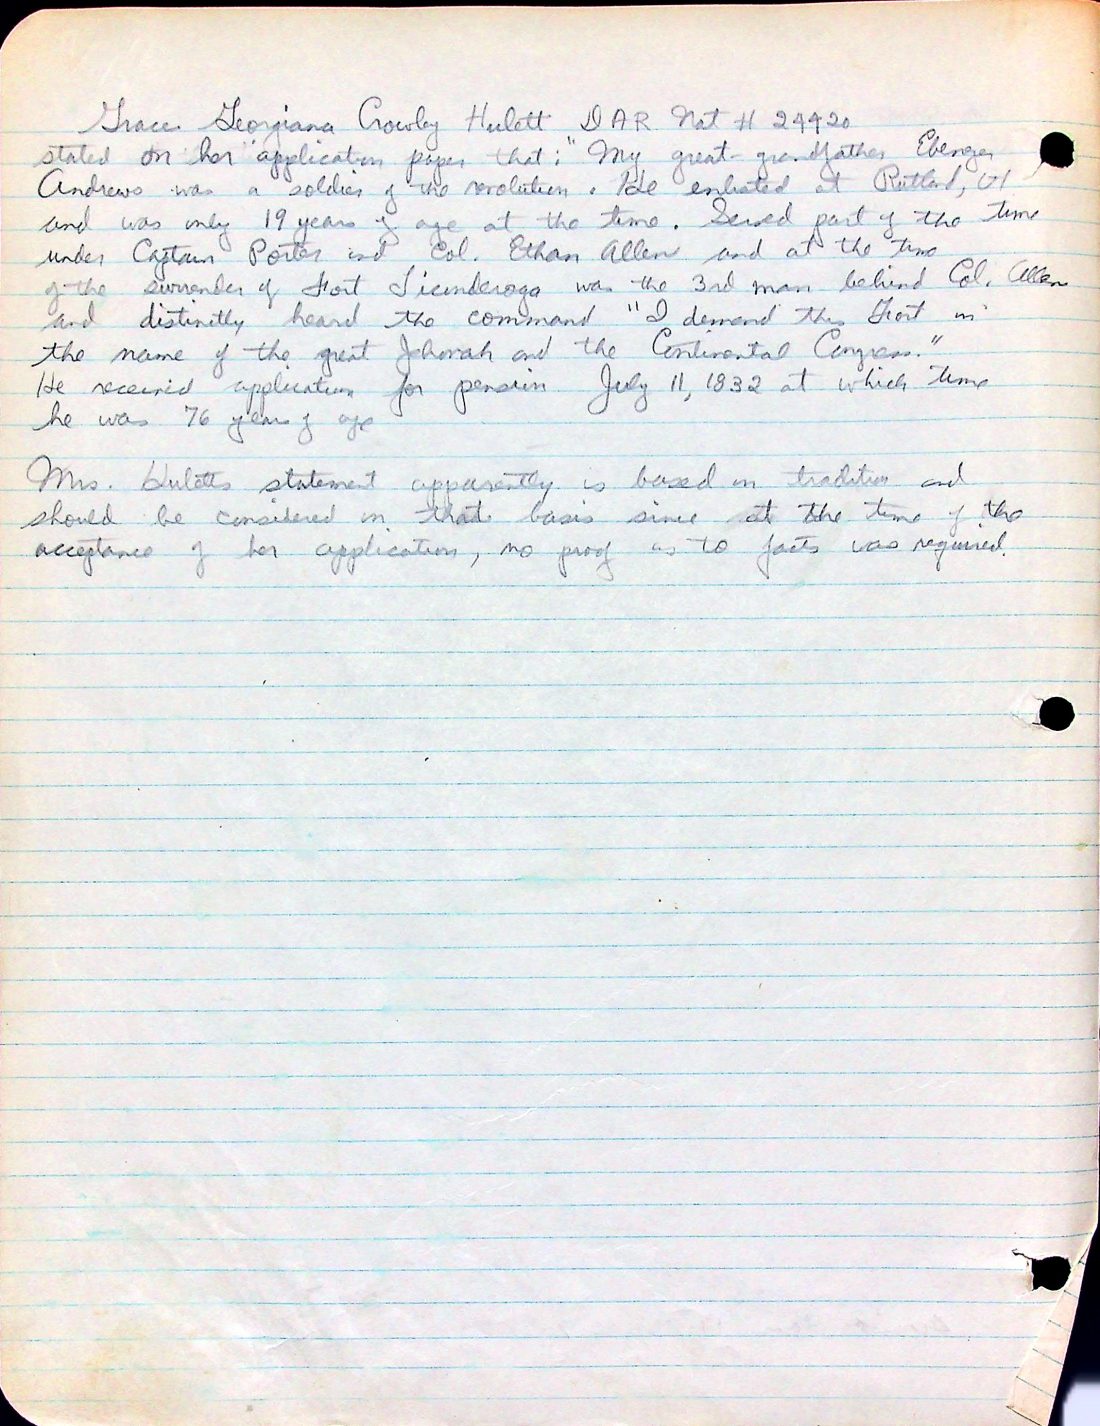 Grace Georgiana Crowley Hulett DAR Nat # 24420
stated on her application paper that: "My great-grandfather Ebenezer
Andrews was a soldier of the revolution. He enlisted at Rutland, Vt
and was only 19 years of age at the time. Served part of the time
under Captain Porter and Col. Ethan Allen and at the time
of the surrender of Fort Ticonderoga was the 3rd man behind Col. Allen
and distinctly heard the command "I demand this Fort in
the name of the great Jehovah and the Continental Congress."
He received application for pension July 11, 1832 at which time
he was 76 years of age
Mrs. Huletts statement apparently is based on tradition and
should be considered on that basis since at the time of the
acceptance of her application, no proof as to facts was required.